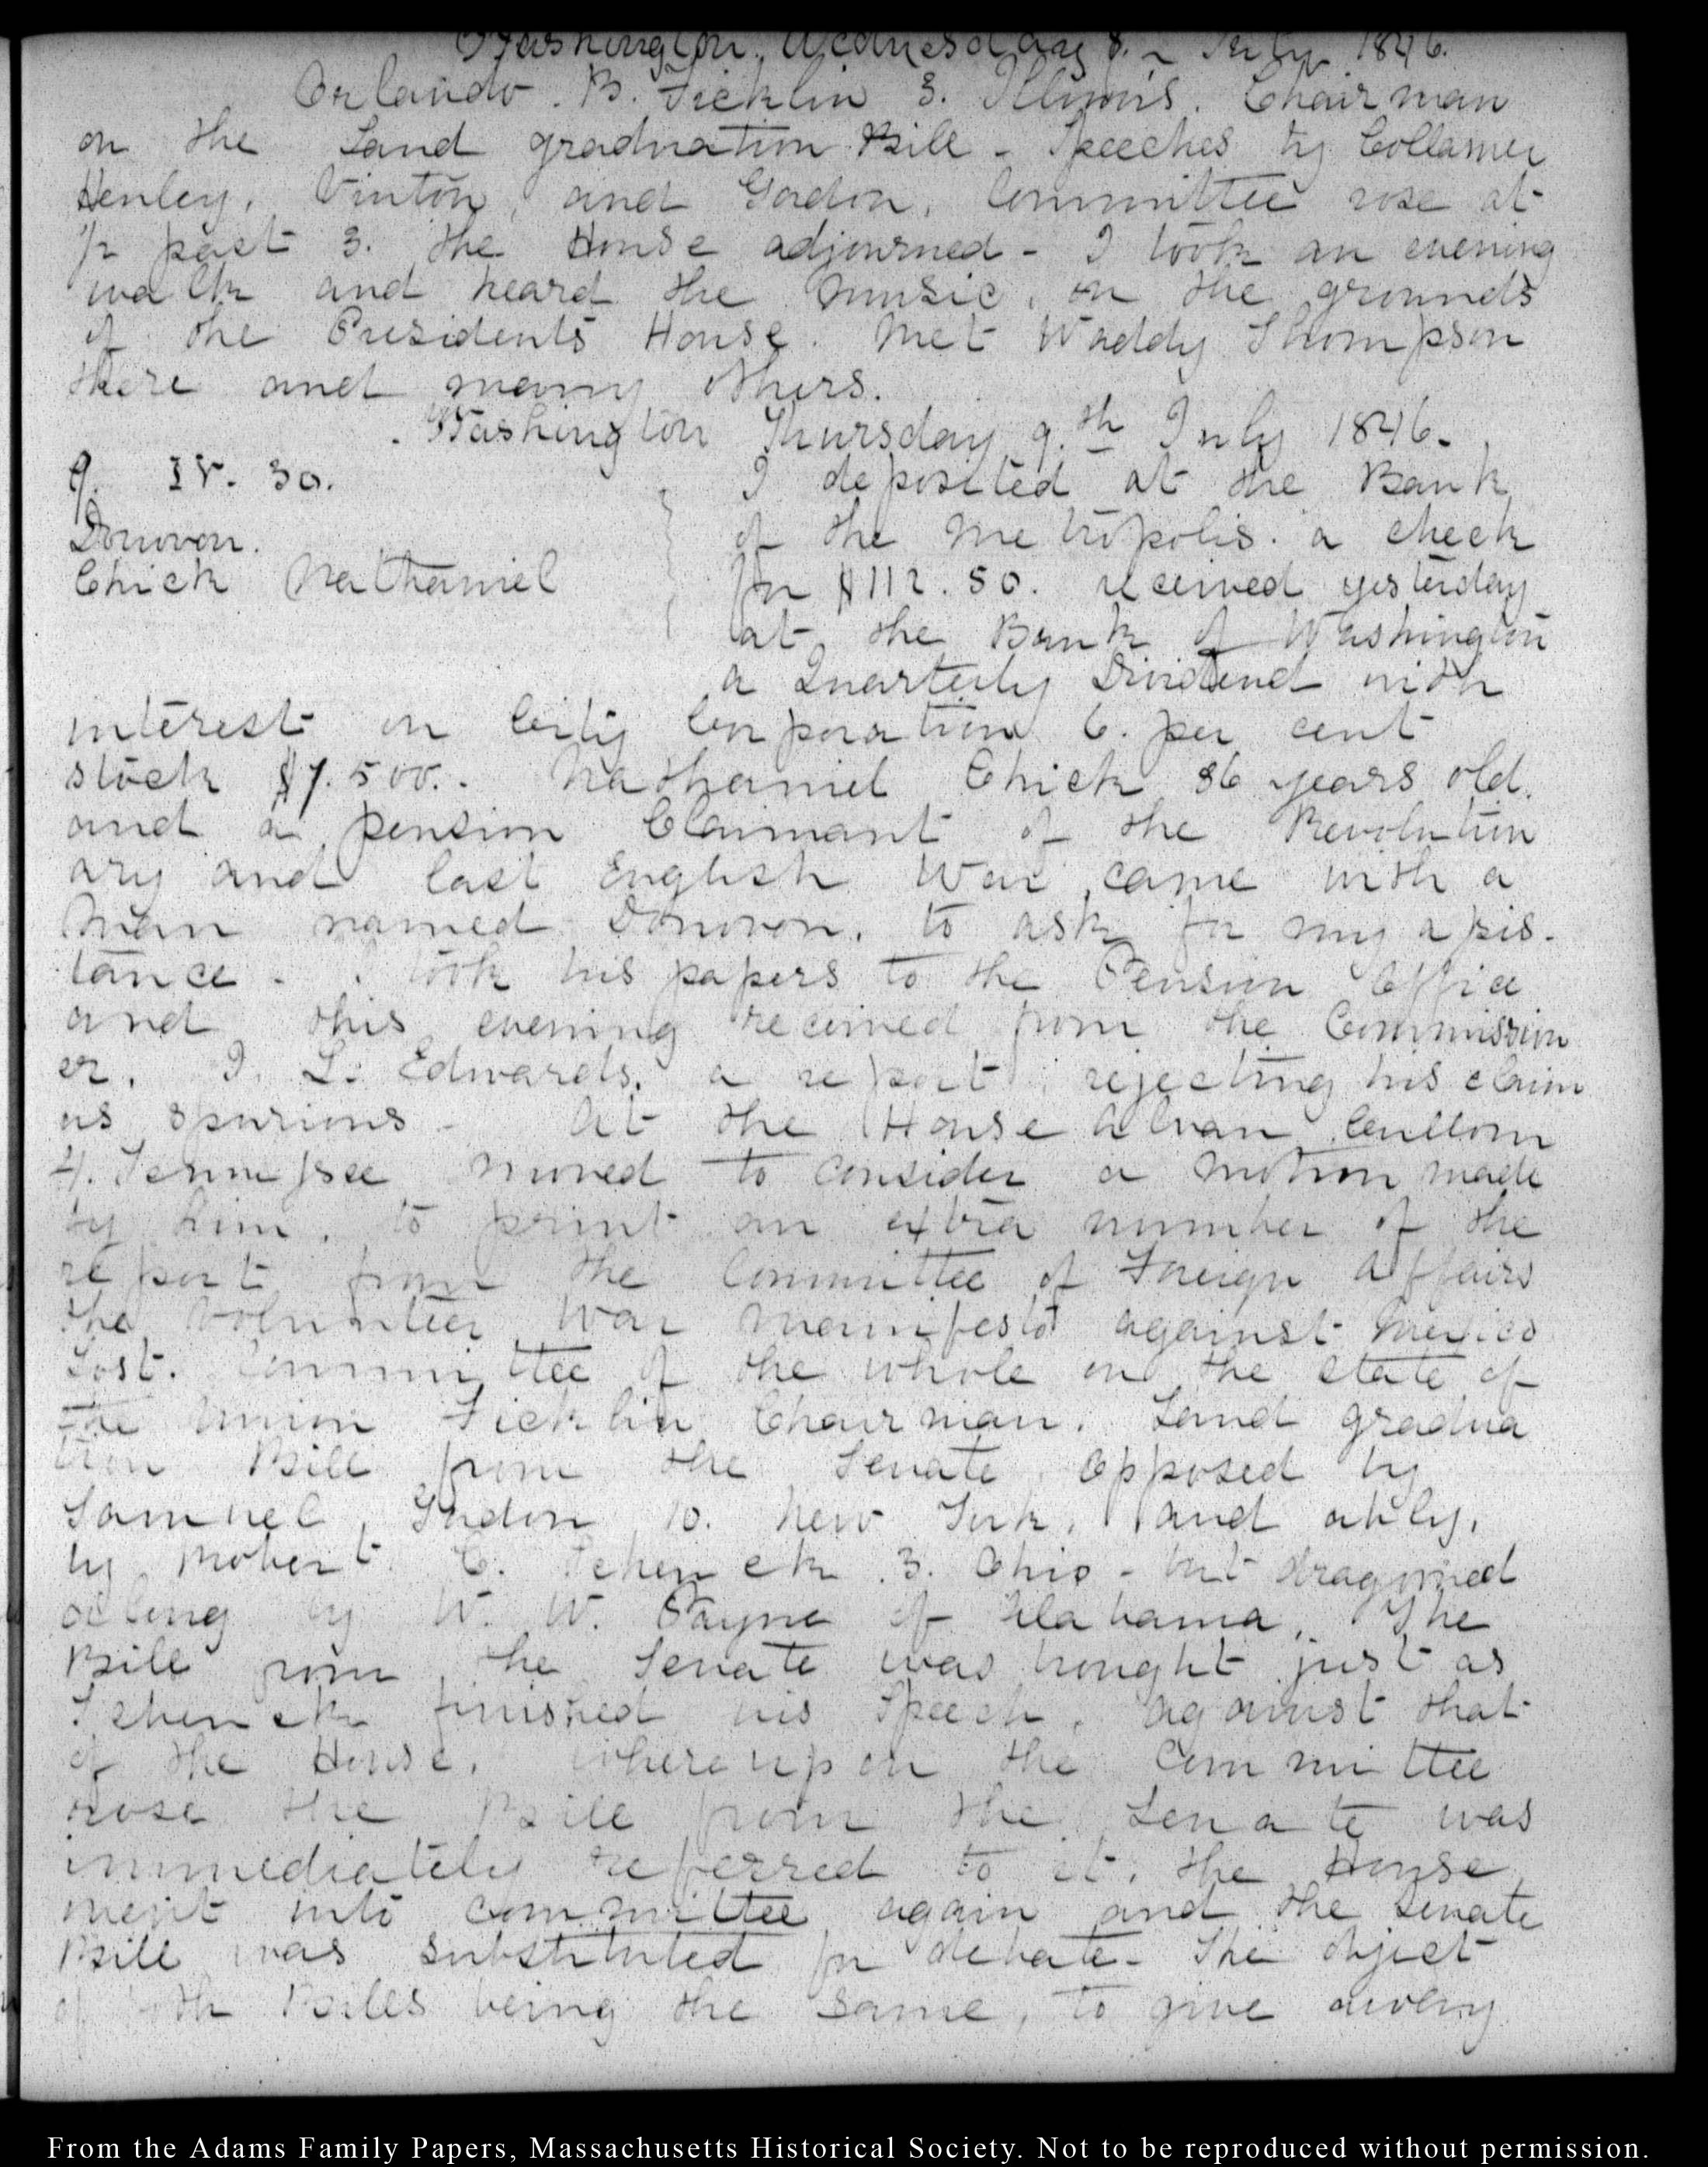 Washington. Wednesday 8. - July 1846.
Orlando. B. Ficklin 3. Illinois. Chairman
on the Land graduation Bill - Speeches by Collamer
Henley, Vinton, and Gordon, Committee rose at
1/2 past 3. the House adjourned - I took an evening
walk and heard the music, on the grounds
of the Presidents House. Met Waddy Thompson
there and many others.
Washington Thursday 9.th July 1846.
9. IV. 30.
Donovon.
Chick Nathaniel
I deposited at the Bank
of the Metropolis. a check
for $112.50. received yesterday
at the Bank of Washington
a Quarterly Dividend with
interest on City Corporation 6. per cent
stock $7.500.. Nathaniel Chick 86 years old.
and a pension Claimant of the Revolution
ary and last English War, came with a
Man named Donovon, to ask for my assis-
tance - I took his papers to the Pension Office
and this evening received from the Commission
er. J. L. Edwards, a report rejecting his claim
as spurious - At the House Alvan Cullom
4. Tennessee moved to consider a motion made
by him, to print an extra number of the
report from the Committee of Foreign Affairs
the Volunteer War manifesto against Mexico
Lost. Committee of the whole on the state of
the Union Ficklin Chairman. Land gradua
tion Bill from the Senate opposed by
Samuel Gordon 10. New York, and ably,
by Robert C. Schenck 3. Ohio - but dragooned
along by W. W. Payne of Alabama. The
Bill from the Senate was brought just as
Schenck finished his Speech, against that
of the House, whereupon the Committee
rose the Bill from the Senate was
immediately referred to it, the House
went into committee again and the Senate
Bill was substituted for debate - The object
of both Bills being the same, to give away
From the Adams Family Papers, Massachusetts Historical Society. Not to be reproduced without permission.